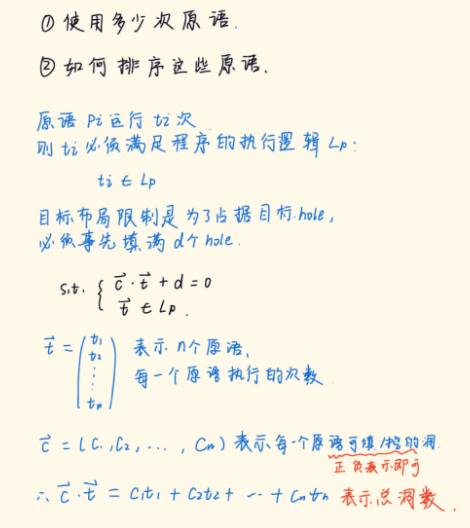 ① 使用多少次原语.
② 如何排序这些原语.
原语 Pi 运行 ti 次
则 ti 必须满足程序的执行逻辑 Lp:
ti ∈ Lp
目标布局限制是为了占据目标 hole,
必须事先填满 d个 hole.
s.t. { c⃗ · t⃗ + d = 0
t⃗ ∈ Lp .
t⃗ = ( t1 t2 ⋮ tn ) 表示 n个原语,
每一个原语执行的次数
c⃗ = ( C1, C2, ..., Cn ) 表示每一个原语可填/挖的洞.
正负表示即可
∴ c⃗ · t⃗ = C1t1 + C2t2 + ... + Cntn 表示总洞数.